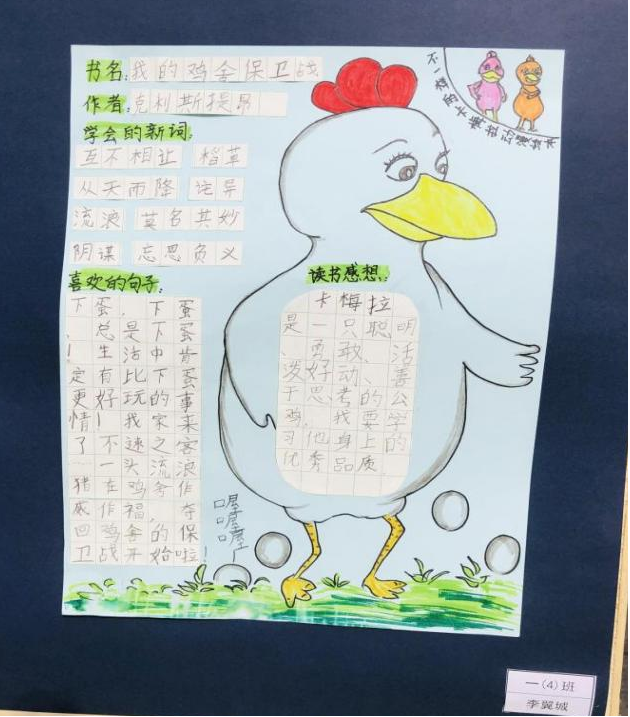 书名:我的鸡舍保卫战
作者:克利斯提昂
学会的新词:
互不相让 檔革
从天而降 诧异
流浪 莫名其妙
阴谋 忘恩负义
喜欢的句子:
下蛋,下蛋
,总是下蛋
!生活中肯
定有比下蛋
更好玩的事
情!我家来
了不速之客
……一头流浪
猪在鸡舍作
威作福,夺
回鸡舍的保
卫战开始啦!
读书感想:
卡梅拉
是一只聪明
、勇敢、活
泼好动、善
于思考的公
鸡,我要学
习他身上的
优秀品质
喔喔喔
一(4)班
李翼城